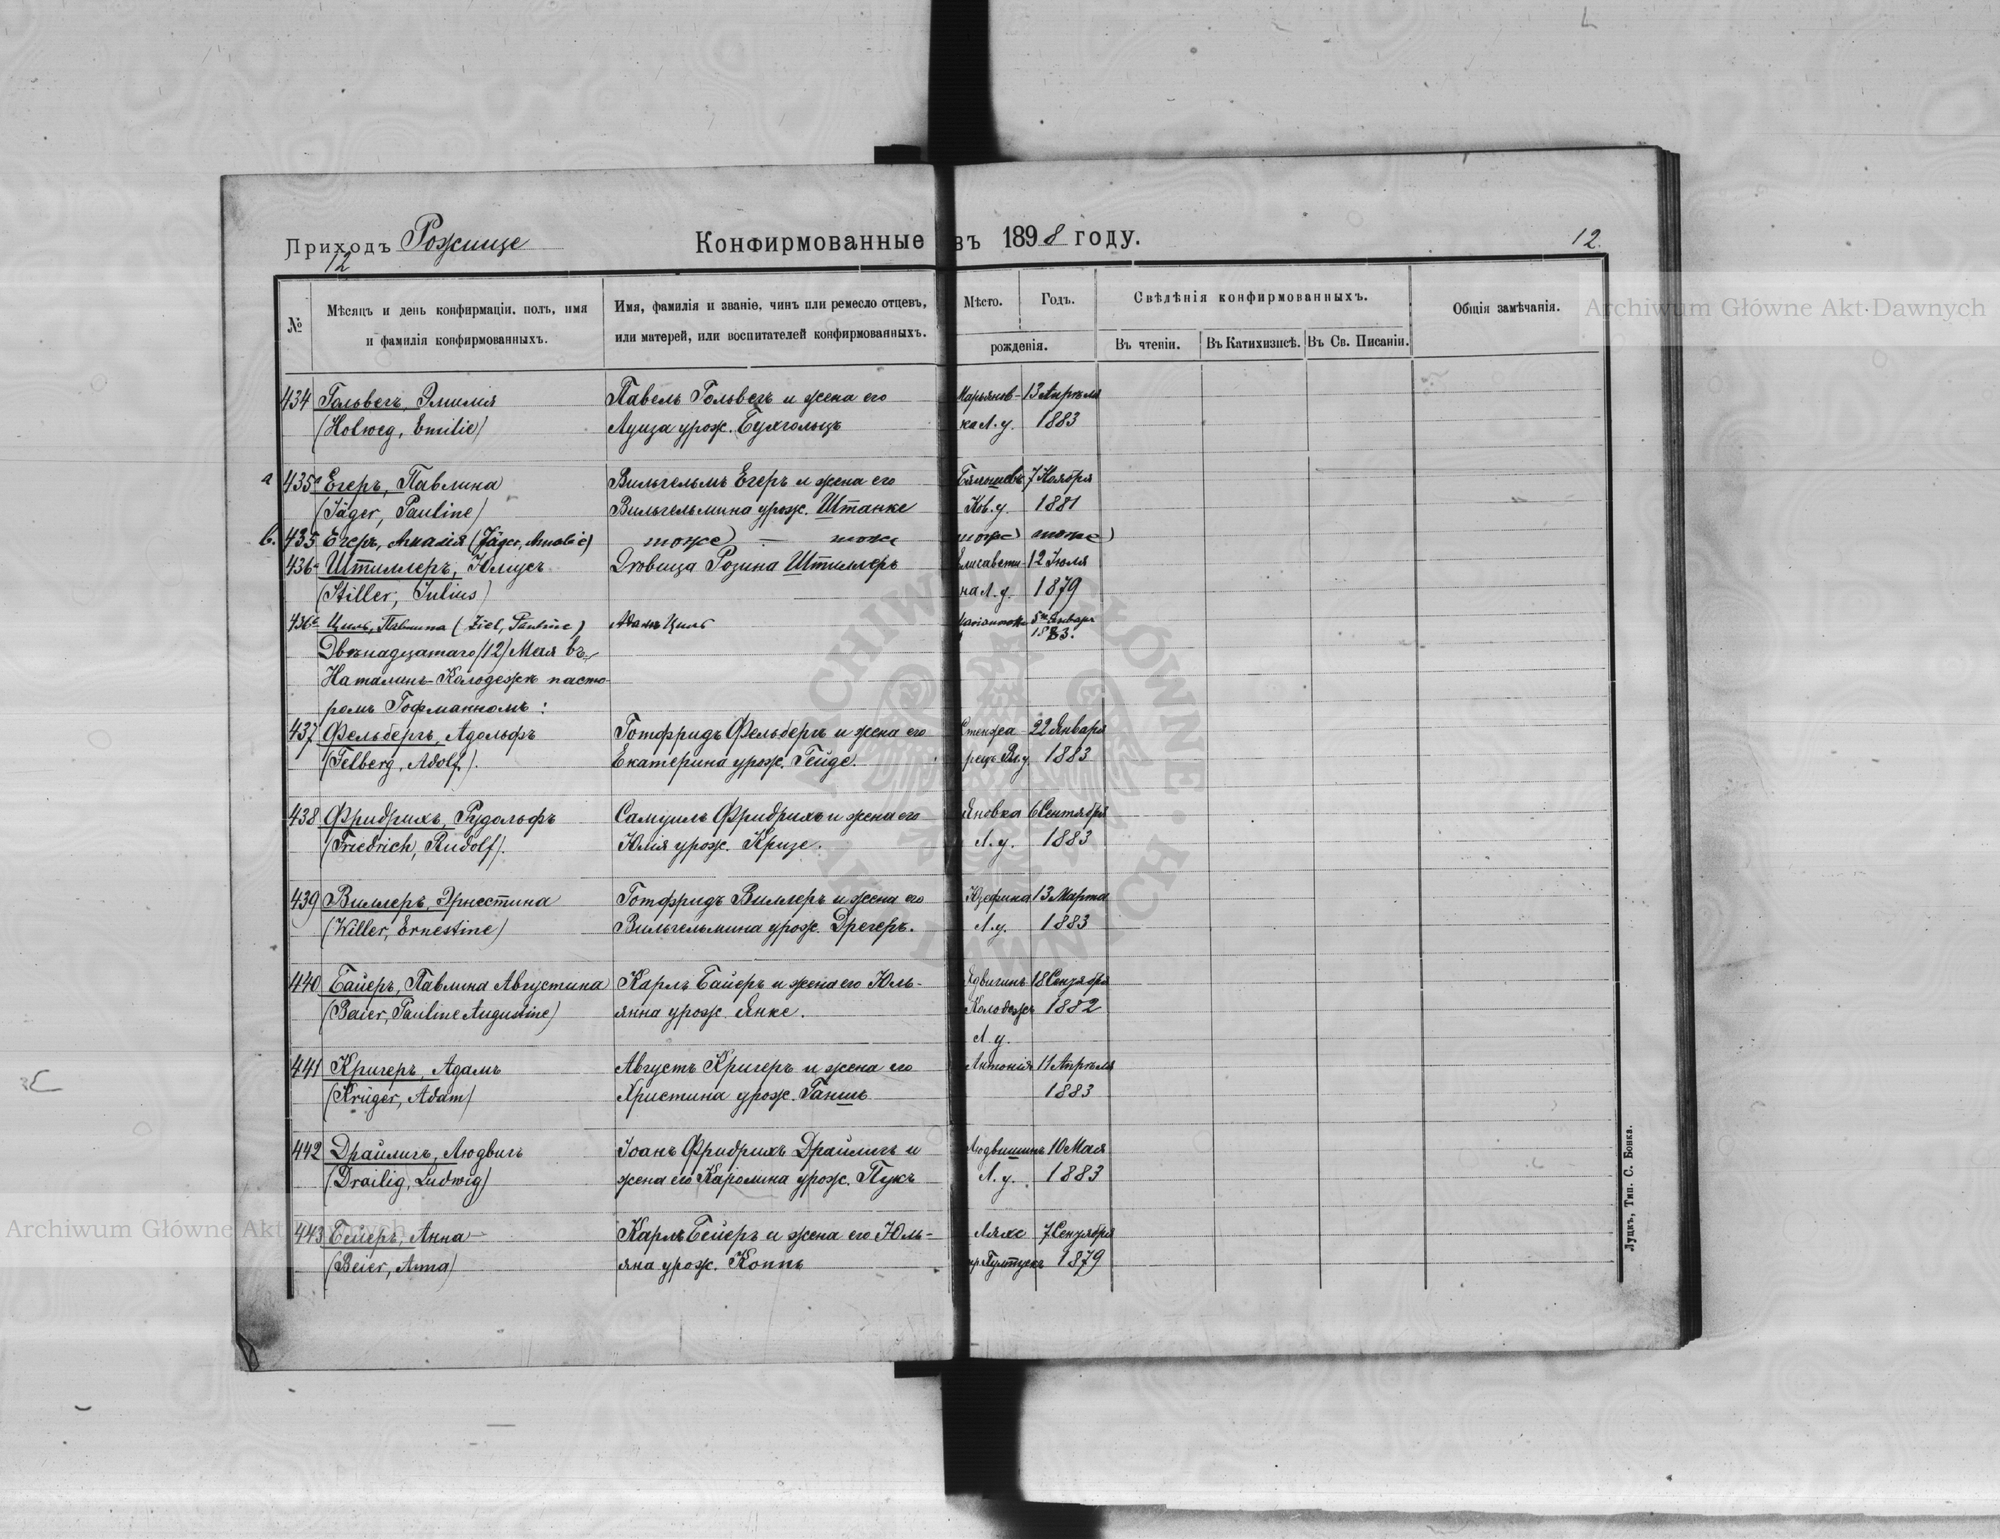 Приходъ Рожище Конфирмованные въ 1898 году. 12.
12
№ Мѣсяцъ и день конфирмаціи, полъ, имя и фамилія конфирмованныхъ.
Имя, фамилія и званіе, чинъ или ремесло отцевъ, или матерей, или воспитателей конфирмованныхъ.
Мѣсто. Годъ.
рожденія.
Свѣдѣнія конфирмованныхъ.
Въ чтеніи. Въ Катихизисѣ. Въ Св. Писаніи.
Общія замѣчанія.
434 Гольвегъ, Эмилія Павелъ Гольвегъ и жена его Марьянов- 13 Апрѣля
(Holweg, Emilie) Луиза урож. Бухгольцъ ка Л. у. 1883
а 435а Егеръ, Павлина Вильгельмъ Егеръ и жена его 7 Ноября
(Jäger, Pauline) Вильгельмина урож. Штанке Ков. у. 1881
b. 435 Егеръ, Амалія (Jäger, Amalie) тоже — тоже тоже тоже
436 Штиллеръ, Юлиусъ Вдовица Розина Штиллеръ Елисавети- 12 Іюля
(Stiller, Julius) на Л. у. 1879
436б Циль, Павлина (Ziel, Pauline) Адамъ Циль 5го Января
1883.
Двѣнадцатаго (12) Мая въ
Наталинъ-Колодежѣ пасто-
ромъ Гофманномъ:
437 Фельбергъ, Адольфъ Готфридъ Фельбергъ и жена его 22 Января
(Felberg, Adolf). Екатерина урож. Гейде. 1883
438 Фридрихъ, Рудольфъ Самуилъ Фридрихъ и жена его Яновка 6 Сентября
(Friedrich, Rudolf). Юлія урож. Кризе. Л. у. 1883
439 Виллеръ, Эрнестина Готфридъ Виллеръ и жена его Юзефина 13 Марта
(Willer, Ernestine) Вильгельмина урож. Дрегеръ. Л. у. 1883
440 Байеръ, Павлина Августина Карлъ Байеръ и жена его Юль- Ядвигинъ 18 Сентября
(Baier, Pauline Augustine) янна урож. Янке. Колодежъ 1882
Л. у.
441 Кригеръ, Адамъ Августъ Кригеръ и жена его Антонія 11 Апрѣля
(Krüger, Adam) Христина урож. Ганшъ 1883
442 Драйлигъ, Людвигъ Іоанъ Фридрихъ Драйлигъ и 10 Мая
(Drailig, Ludwig) жена его Каролина урож. Пукъ Л. у. 1883
443 Бейеръ, Анна Карлъ Бейеръ и жена его Юль- Ляхе 7 Сентября
(Beier, Anna) яна урож. Коппъ 1879
Луцкъ, Тип. С. Бонкъ.
Archiwum Główne Akt Dawnych
Archiwum Główne Akt Dawnych
ARCHIWUM GŁÓWNE AKT DAWNYCH